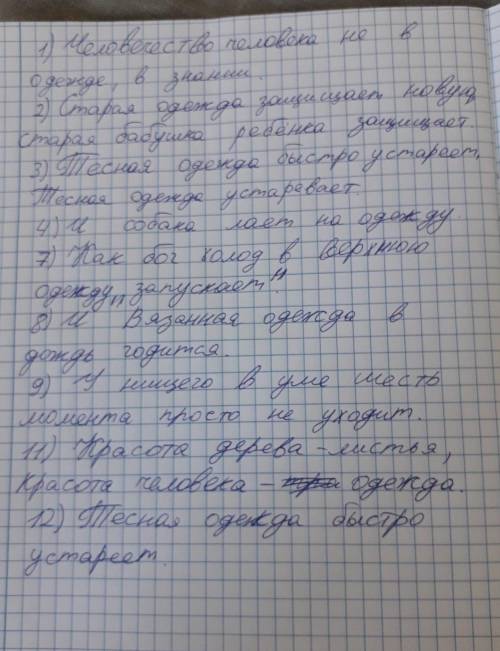 1) Человечество человека не в
одежде, в знании.
2) Старая одежда защищает новую,
старая бабушка ребёнка защищает.
3) Тесная одежда быстро устареет,
тесная одежда устаревает.
4) И собака лает на одежду.
7) Как бог холод в верхнюю
одежду „запускает".
8) И вязанная одежда в
дождь годится.
9) У нищего в уме шесть
момента просто не уходит.
11) Красота дерева - листья,
красота человека - одежда.
12) Тесная одежда быстро
устареет.